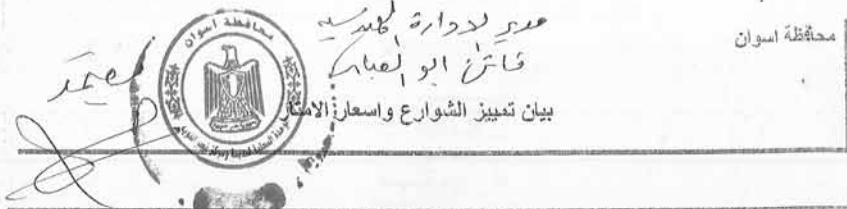 محافظة اسوان
مدير الادارة الهندسية
فاتن ابو العباس
يعتمد
محافظة اسوان
بيان تمييز الشوارع واسعار الامتار